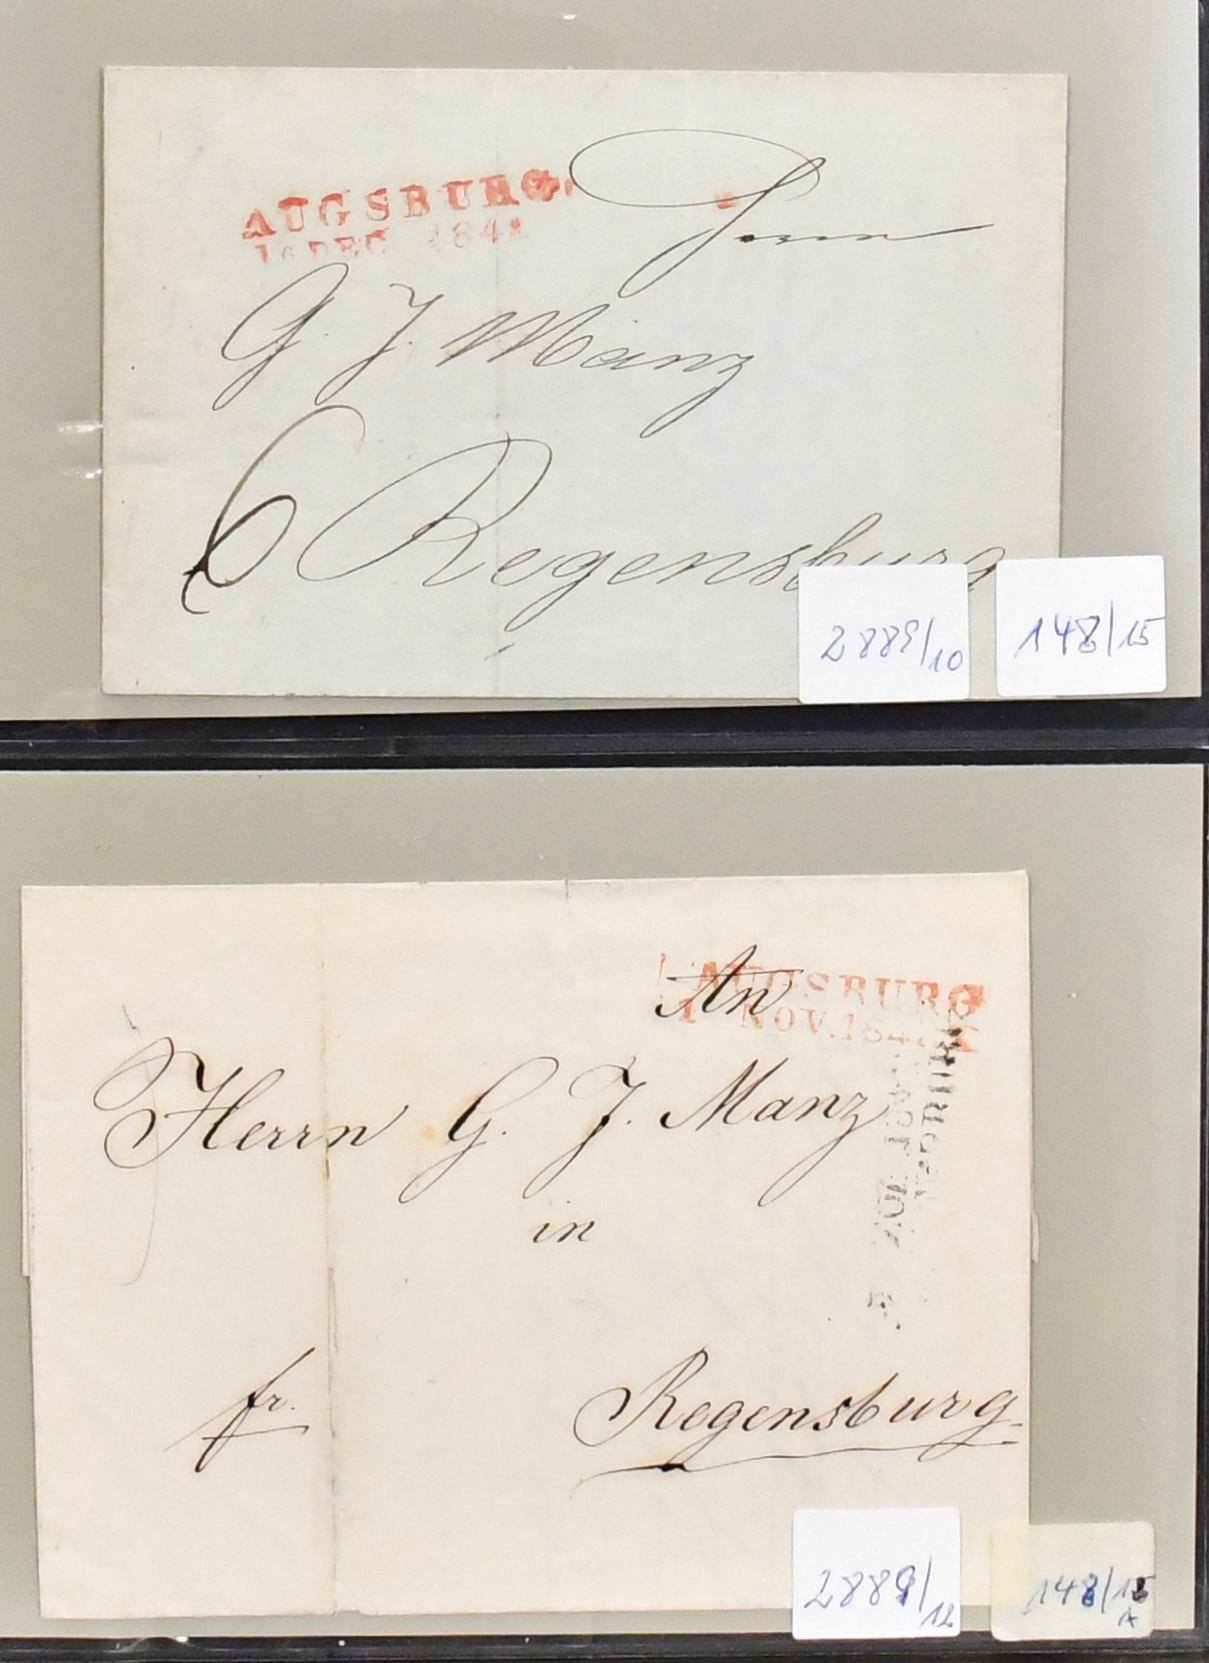 AUGSBURG.
DEC 184
Herrn
G. J. Manz
6 Regensburg
2889/10
148/15
AUGSBURG
NOV. 184
An
Herrn G. J. Manz
in
fr.
Regensburg.
2889/12
148/15
A